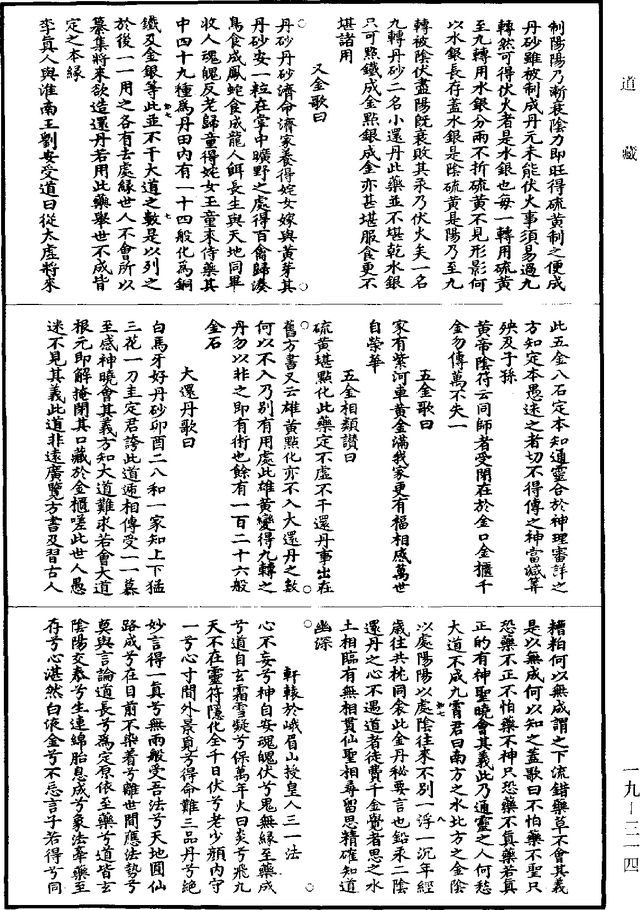 道藏
制陽陽乃漸衰陰力即旺得硫黃制之便成
丹砂雖被制成丹元未能伏火事須易過九
轉然可得伏火者是水銀也每一轉用硫黃
至九轉用水銀分兩不折硫黃不見形影何
以水銀長存蓋水銀是陰硫黃是陽乃至九
轉被陰伏盡陽既衰敗其汞乃伏火矣一名
九轉丹砂二名小還丹此藥並不堪乾水銀
只可點鐵成金點銀成金亦甚堪服食更不
堪諸用
又金歌曰
丹砂丹砂濟命濟家養得姹女嫁與黃芽其
丹砂安一粒在掌中曠野之處得百禽歸湊
鳥食成鳳蛇食成龍人餌長生與天地同畢
收人魂魄反老歸童得姹女玉童來侍藥其
中四十九種為丹田內有一十四般化為銅
鐵及金銀等此並不干大道之數是以列之
於後一一用之各有去處緣世人不會所以
纂集將來欲造還丹若用此藥舉世不成皆
定之本緣
李真人與淮南王劉安受道曰從太虛將來
此五金八石定本知通靈合於神理審詳之
方知定本愚迷之者切不得傳之神當減筭
殃及子孫
黃帝陰符云同師者受閉在於金口金櫃千
金勿傳萬不失一
五金歌曰
家有紫河車黃金滿我家更有福相感萬世
自榮華
五金相類讚曰
硫黃堪點化此藥定不虛不干還丹事出在
舊方書又云雄黃點化亦不入大還丹之數
何以不入乃別有用處此雄黃變得九轉之
丹勿以非之即有術也餘有一百二十六般
金石
大還丹歌曰
白馬牙好丹砂卯酉二八和一家知上下猛
三花一刀圭定君誇此道遞相傳受一一慕
至感神曉會其義方知大道難求若會大道
根元即解掩閉其口藏於金櫃嗟此世人愚
迷不見其義此道非遠廣覽方書及習古人
糟粕何以無成謂之下流錯藥草不會其義
是以無成何以知之蓋歌曰不怕藥不聖只
恐藥不正不怕藥不神只恐藥不真藥若真
正的有神聖曉會其義此乃通靈之人何愁
大道不成九霄君曰南方之水北方之金陰
以處陽陽以處陰往來不別一浮一沉年經
歲往共枕同衾此金丹秘要言也鉛汞二陰
還丹之心不遇道者徒費千金覺者思之水
土相臨有無相貫仙聖相尋留思精確知道
幽深
軒轅於峨眉山授皇人三一法
心不妄兮神自安魂魄伏兮鬼無緣至藥成
兮道自玄霜雪凝兮保萬年火日炎兮飛九
天不在靈符隱化全千日伏兮老少顏內守
一兮心寸間外景覓兮得命難三品丹兮絕
妙言得一真兮無兩般受吾法兮天地圓仙
路成兮在目前不染着兮離世間應法勢兮
莫與言論道長兮為定原依至藥兮道皆玄
陰陽交泰兮生連綿胎息成兮象法辜藥至
存兮心湛然白液金兮不忘言子若得兮同
一九—三一四